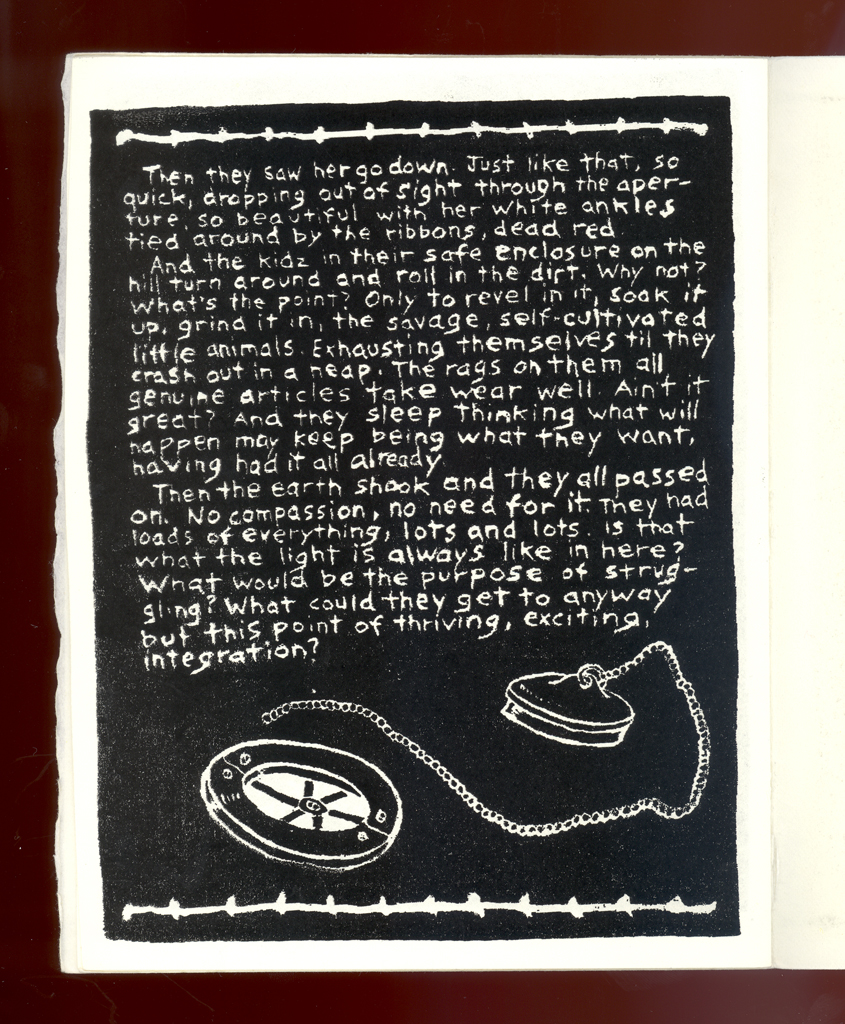 Then they saw her go down. Just like that, so
quick, dropping out of sight through the aper-
ture, so beautiful with her white ankles
tied around by the ribbons, dead red.
And the kidz in their safe enclosure on the
hill turn around and roll in the dirt. Why not?
What's the point? Only to revel in it, soak it
up, grind it in, the savage, self-cultivated
little animals. Exhausting themselves til they
crash out in a heap. The rags on them all
genuine articles take wear well. Ain't it
great? And they sleep thinking what will
happen may keep being what they want,
having had it all already.
Then the earth shook and they all passed
on. No compassion, no need for it. They had
loads of everything, lots and lots. Is that
what the light is always like in here?
What would be the purpose of strug-
gling? What could they get to anyway
but this point of thriving, exciting,
integration?